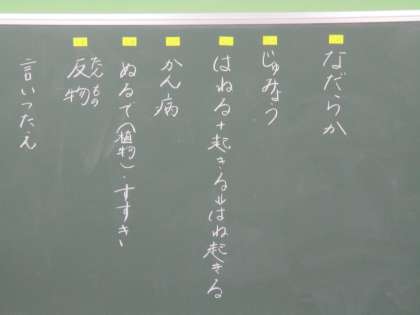 なだらか
じゅみょう
はねる+起きる=はね起きる
かん病
ぬるで(植物)・すすき、
反物
たんもの
言いつたえ